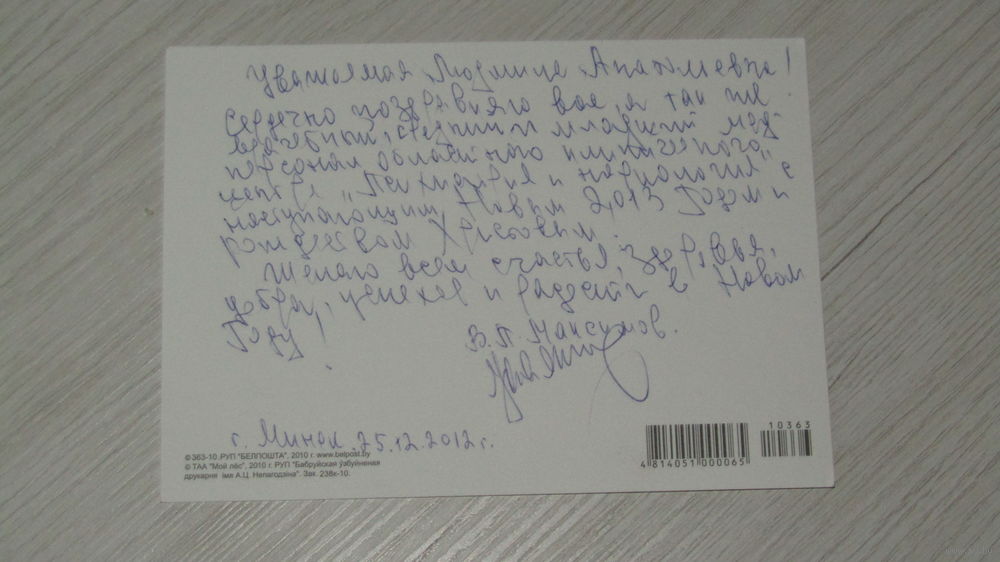 Уважаемая Людмила Анатольевна!
Сердечно поздравляю вас, а так же
врачебный, средний и младший мед-
персонал областного клинического
центра "Психиатрия и наркология" с
наступающим Новым 2013 Годом и
рождеством Христовым.
Желаю всем счастья, здоровья,
добра, успехов и радости в Новом
Году!
В.П. Максимов.
г. Минск. 25.12.2012г.
10363
4 814051 000065
© 363-10. РУП "БЕЛПОШТА", 2010 г. www.belpost.by
© ТАА "Мой лёс", 2010 г. РУП "Бабруйская ўзбуйненая
друкарня імя А.Ц. Непагодзіна". Зак. 238к-10.